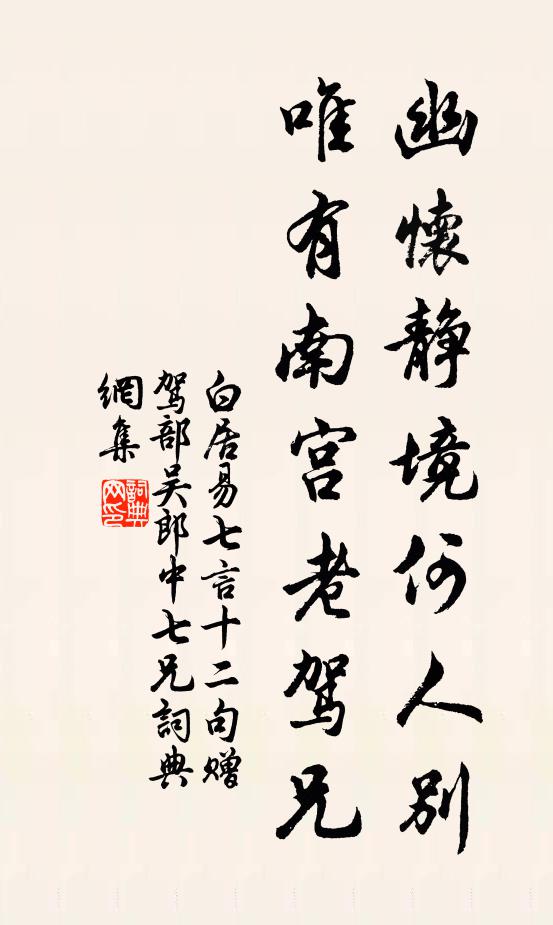 幽懷静境何人别
唯有南宫老駕兄
白居易七言十二句赠
駕部吴郎中七兄詞典
網集
詞典
网印